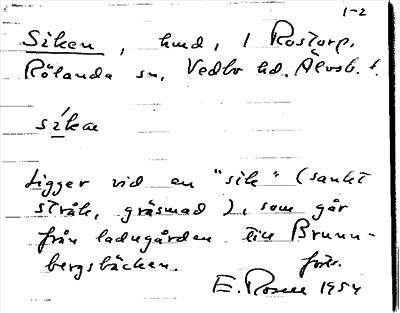 1-2
Siken, hmd, i Rostorp,
Rölanda sn, Vedbo hd, Älvsb. l.
síka
Ligger vid en "sik" (sankt
stråk, gräsmad), som går
från ladugården till Brunn-
bergsbäcken. forts.
E. Rosell 1954